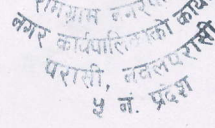 रामग्राम नगर
नगर कार्यपालिकाको कार्या
परासी, नवलपरासी
५ नं. प्रदेश